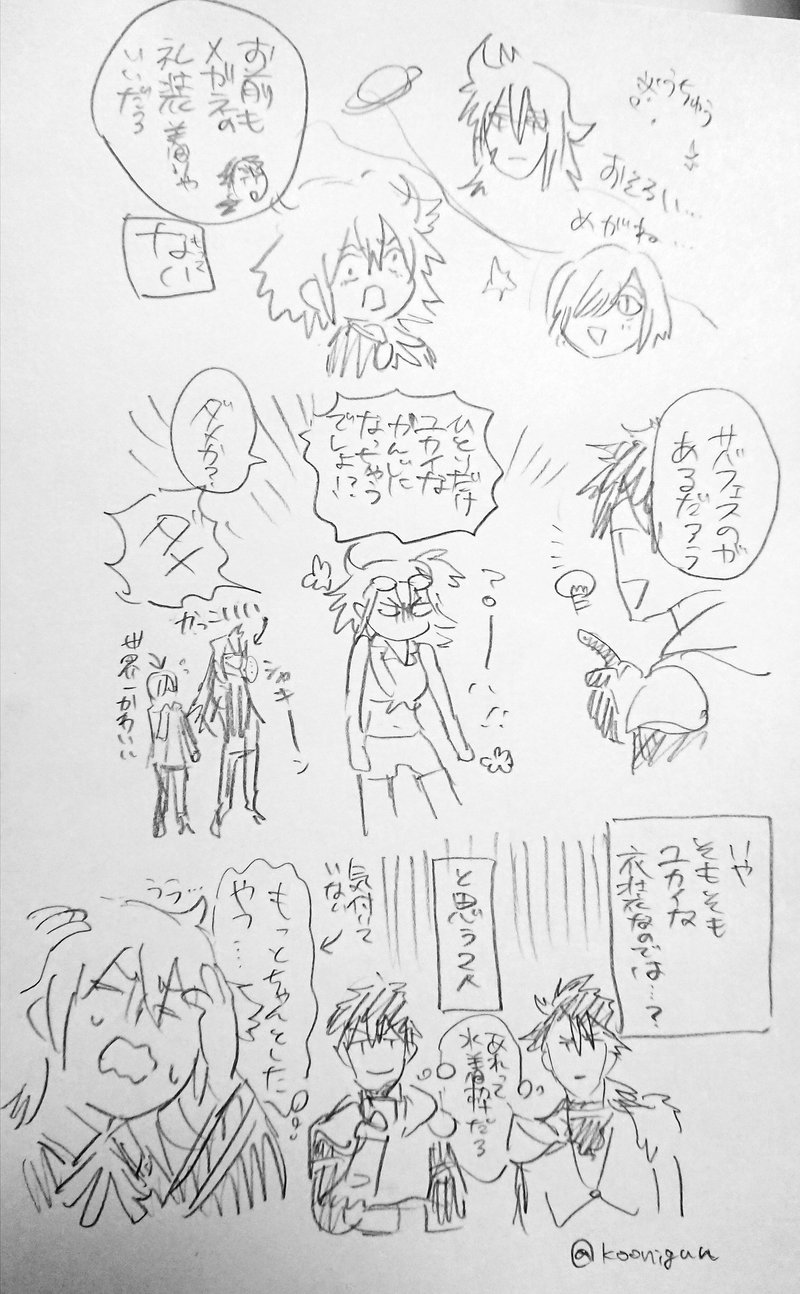 うちゅう
おそろい…
めがね…
お前も
メガネの
礼装着りゃ
いいだろ
もって
ない
サバフェスのが
あるだろう
ひとりだけ
ユカイな
かんじに
なっちゃう
でしょ!?
ダメか?
ダメ
かっこいい
シャキーン
世界一かわいい
いや
そもそも
ユカイな
衣装なのでは…?
と思う2人
あれって
水着枠だろ
気付いて
いない
もっとちゃんとした
やつ…
うう…
@koonigun